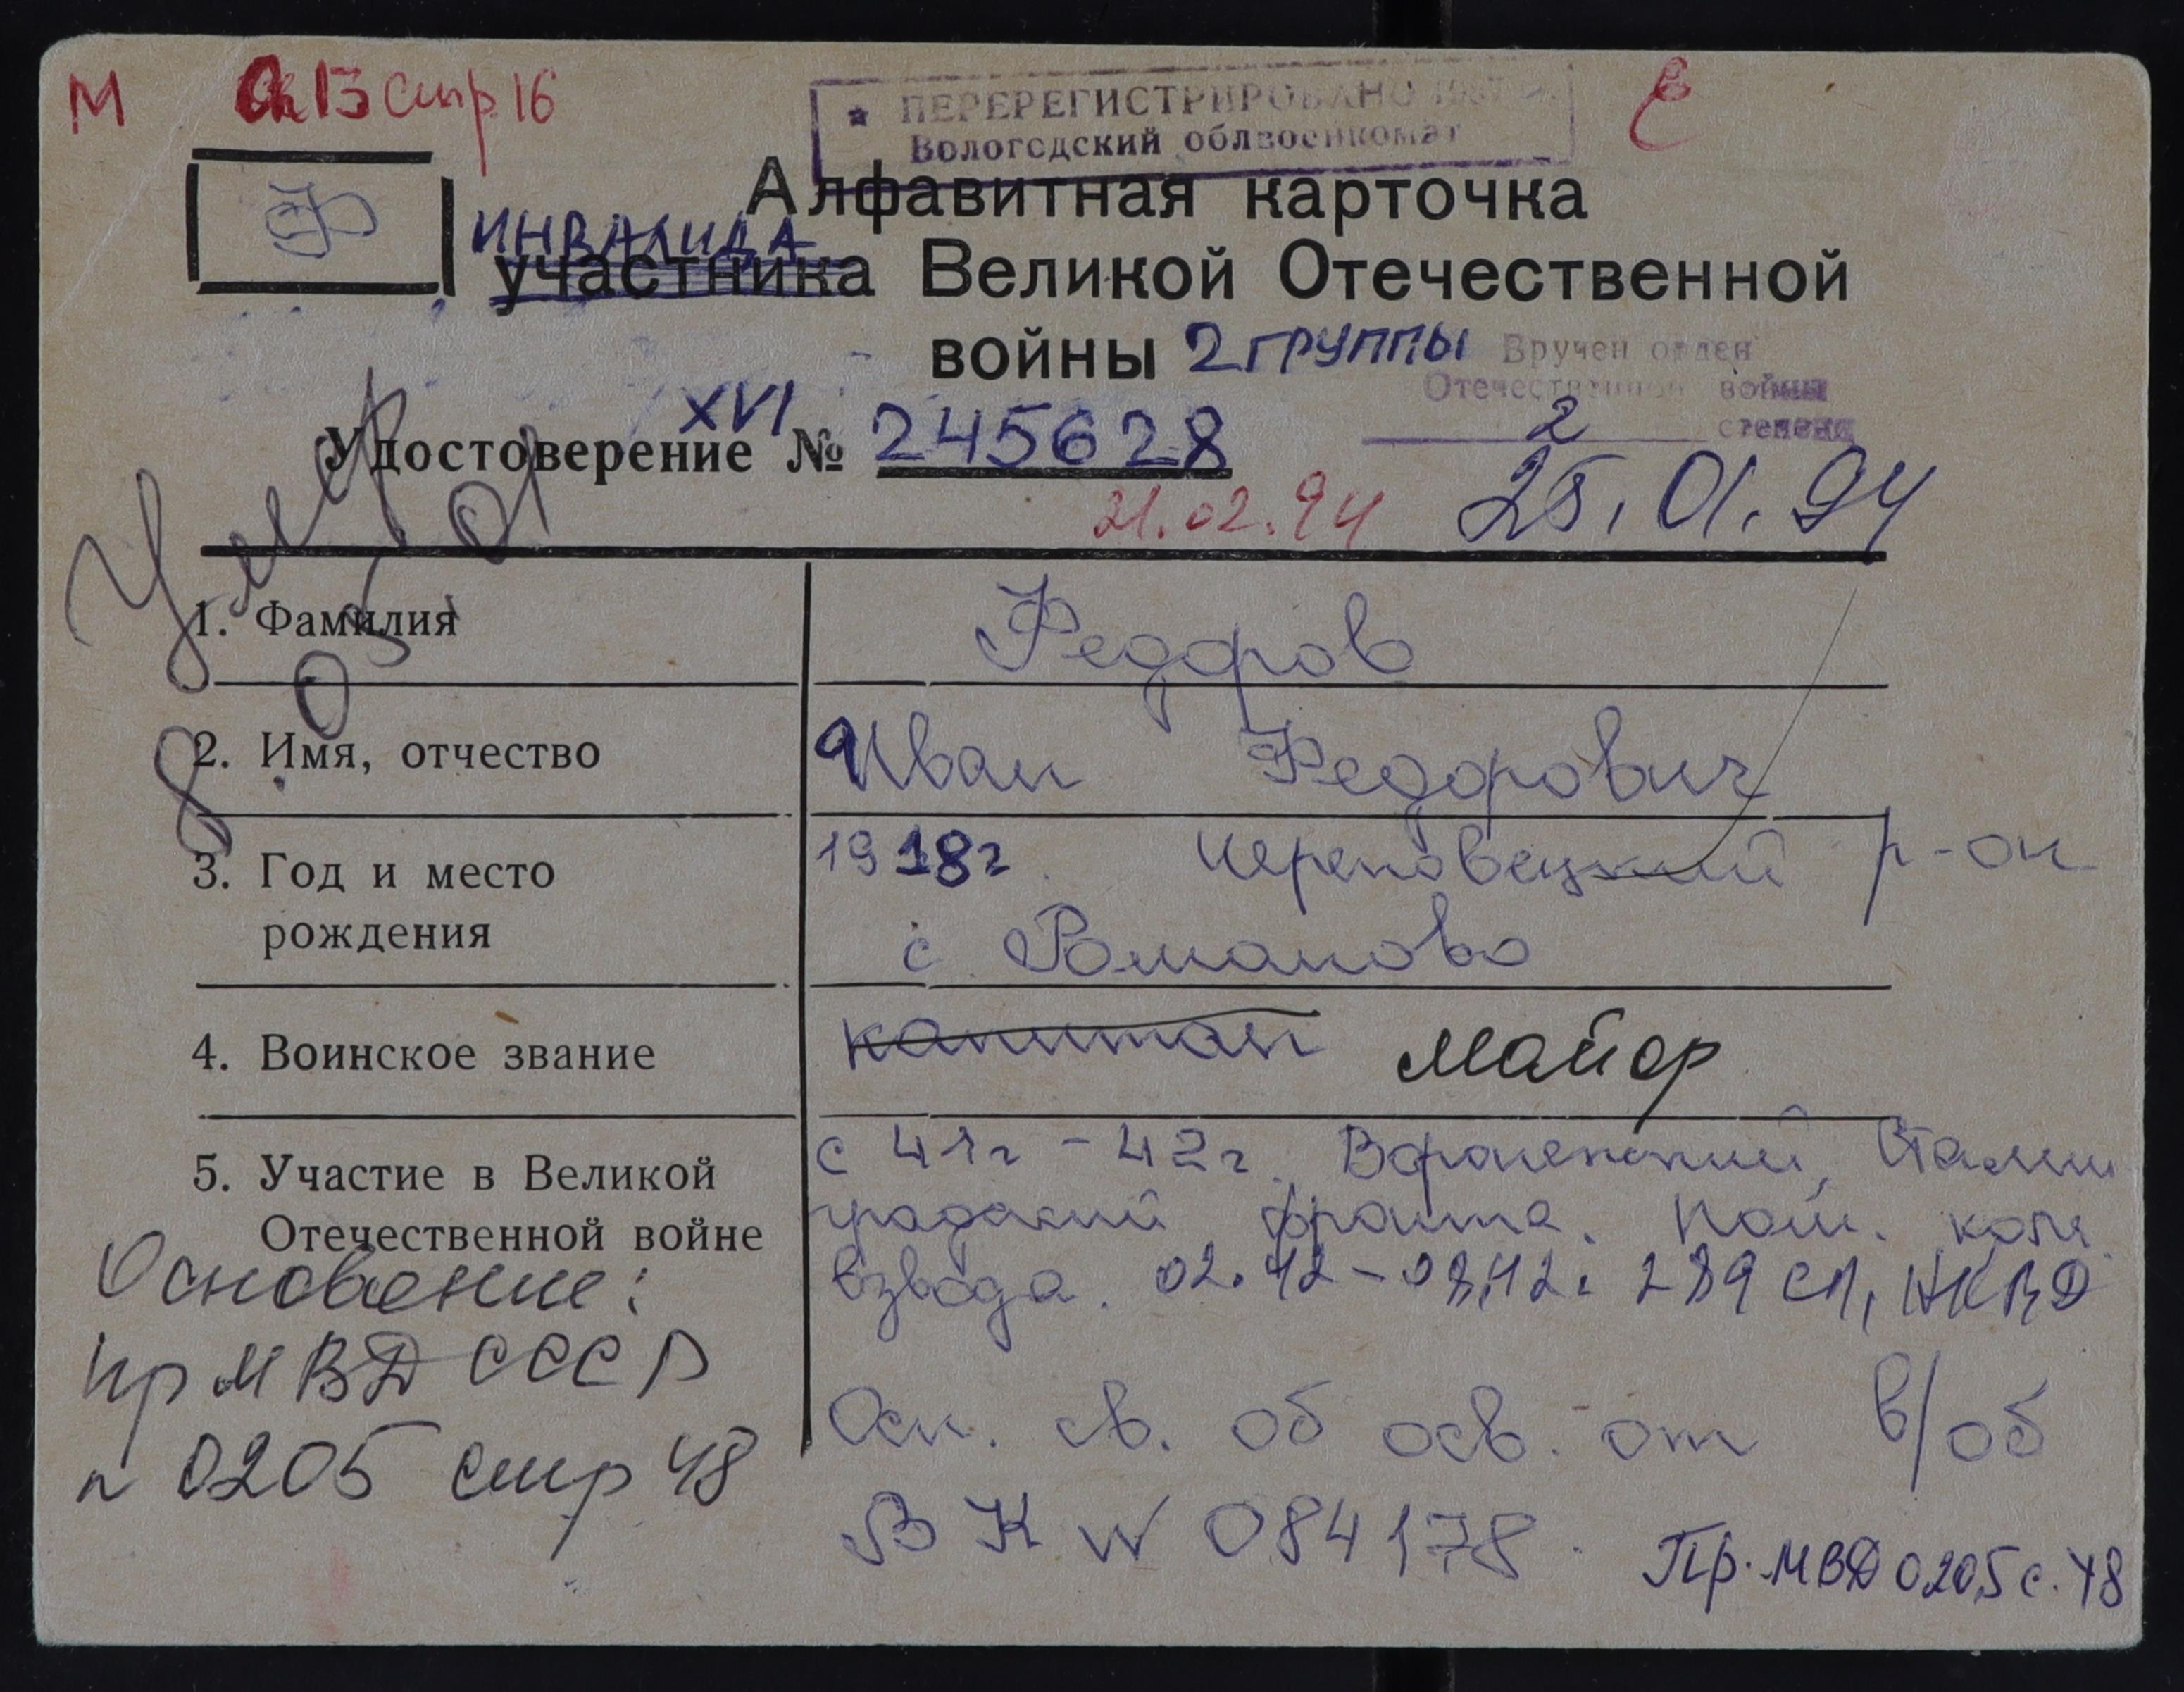 М Ок 13 стр 16
★ ПЕРЕРЕГИСТРИРОВАНО 1987
Вологодский облвоенкомат
Ф
Алфавитная карточка
ИНВАЛИДА
участника Великой Отечественной
войны 2 ГРУППЫ
Вручен орден
Отечественной войны
2 степени
XVI
Удостоверение № 245628
21.02.94 25.01.94
Умер
8.05.01
1. Фамилия Федоров
2. Имя, отчество Иван Федорович
3. Год и место 1918г. Череповецкий р-он
рождения с. Романово
4. Воинское звание капитан майор
5. Участие в Великой с 41г - 42г. Воронежский, Сталин
Отечественной войне градский фронта. Пом. ком.
взвода. 02.42-08.42. 289 СП, НКВД
Основание:
Пр МВД СССР
n 0205 стр 48
Осн. св. об осв. от в/об
ВК N 084178.
Пр. МВД 0205 с. 48